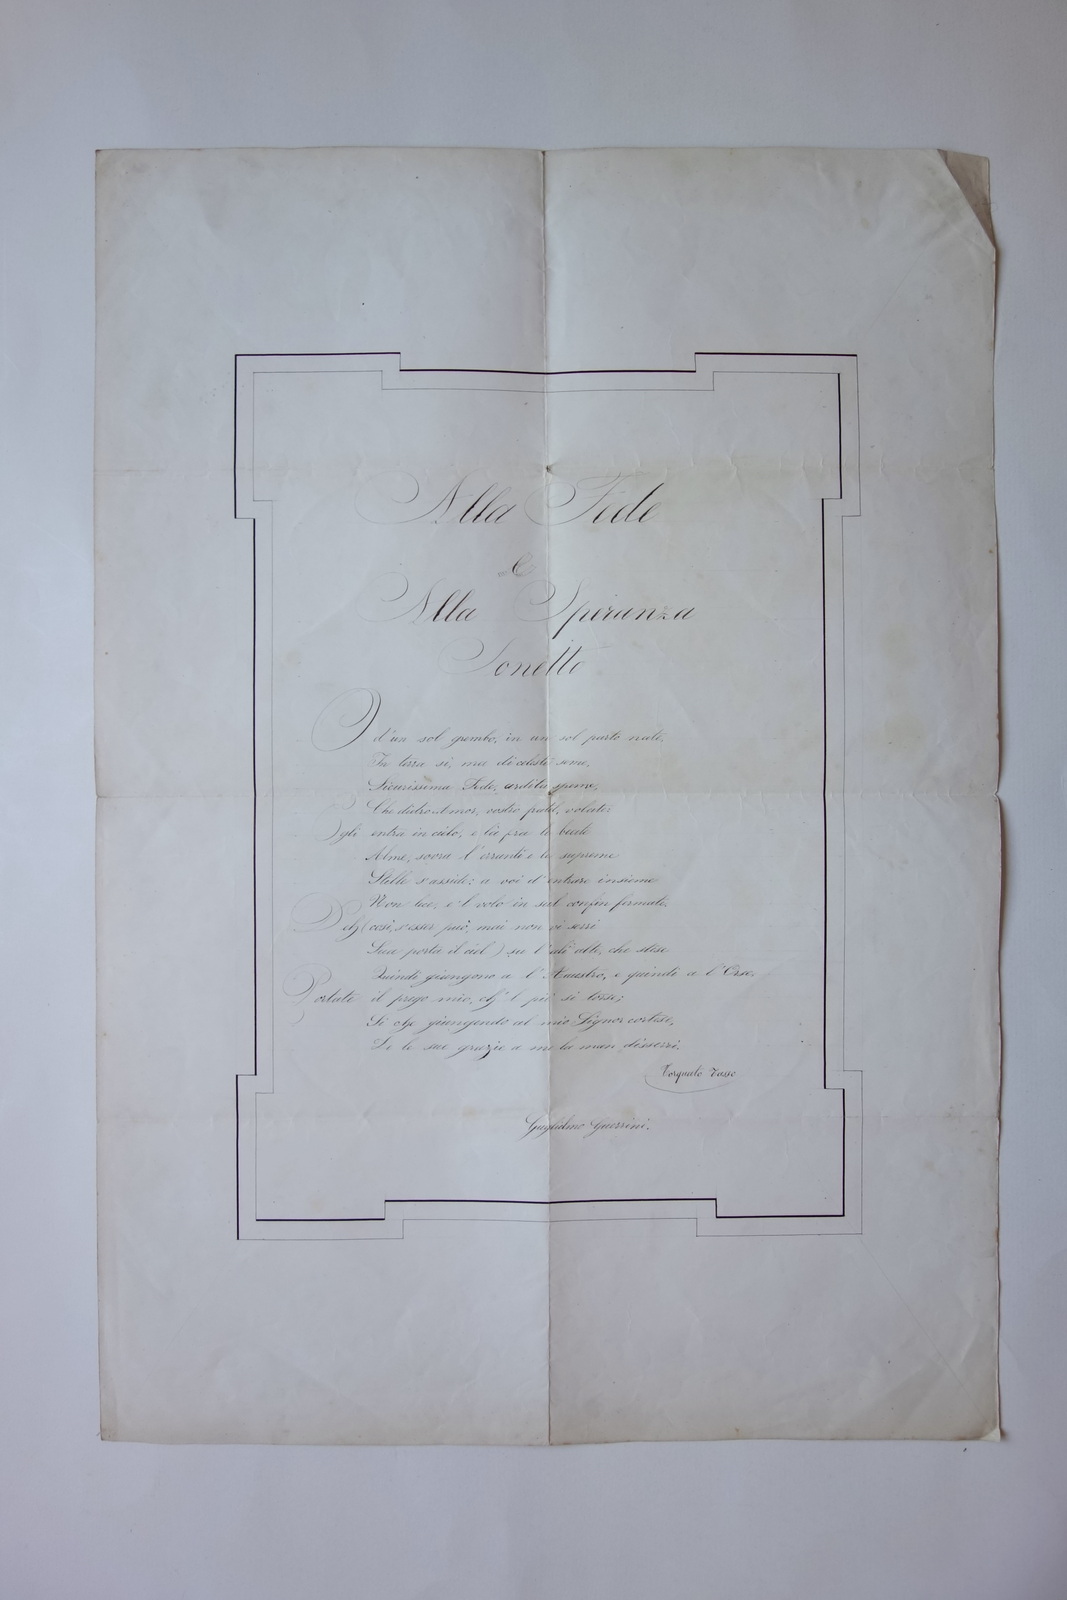 Alla Fede
e
Alla Speranza
Sonetto
O d'un sol grembo, in un sol parto nate,
In terra si, ma di celeste seme,
Sicurissima Fede, ardita speme,
Che dietro Amor, vostro padre, volate:
Egli entra in cielo, e là fra le beate
Alme, sovra l'erranti e le supreme
Stelle s'asside: a voi d'entrare insieme
Non lice, e'l volo in sul confin fermate.
Deh (così, s'esser può, mai non vi serri
Sua porta il ciel) su l'ali alte, che stese
Quindi giungono a l'Austro, e quindi a l'Orse,
Portate il prego mio, ch'l piè si torse;
Si che giungendo al mio Signor cortese,
De le sue grazie a me la man disserri.
Torquato Tasso
Guglielmo Guerrini.